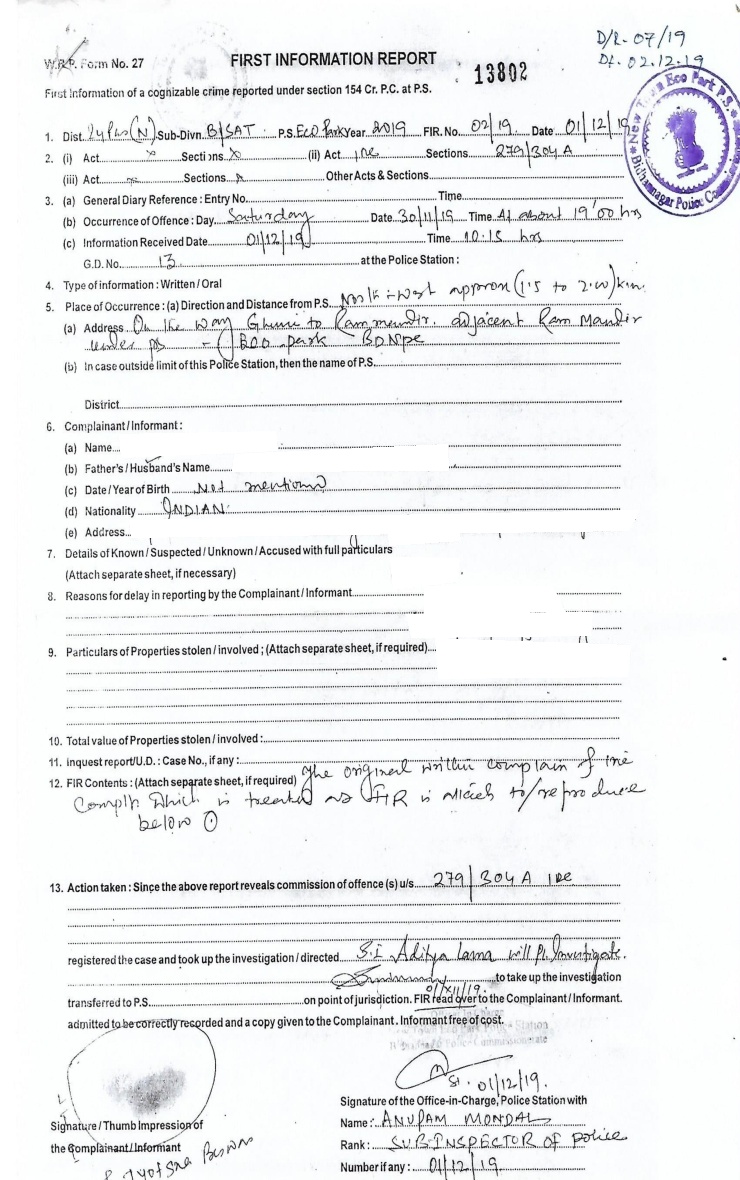 D/R- 07/19
Dt. 02.12.19
W.B.P. Form No. 27
FIRST INFORMATION REPORT
13802
First Information of a cognizable crime reported under section 154 Cr. P.C. at P.S.
New Town Eco Park P.S.
Bidhannagar Police Commissionerate
1. Dist. 24 Pgs (N) Sub-Divn. B/SAT. P.S. Eco Park Year 2019 FIR. No. 02/19. Date 01/12/19
2. (i) Act x Sections x (ii) Act IPC Sections 279/304 A
(iii) Act Sections Other Acts & Sections
3. (a) General Diary Reference : Entry No. Time
(b) Occurrence of Offence : Day Saturday Date 30/11/19 Time At about 19'00 hrs
(c) Information Received Date 01/12/19 Time 10.15 hrs
G.D. No. 13 at the Police Station :
4. Type of information : Written / Oral
5. Place of Occurrence : (a) Direction and Distance from P.S. North-West approx (1.5 to 2.00) km.
(a) Address On the way Ghuni to Ram mandir. adjacent Ram Mandir
under ps - Eco park BDNPC
(b) In case outside limit of this Police Station, then the name of P.S.
District
6. Complainant / Informant :
(a) Name
(b) Father's / Husband's Name
(c) Date / Year of Birth Not mentioned
(d) Nationality INDIAN.
(e) Address
7. Details of Known / Suspected / Unknown / Accused with full particulars
(Attach separate sheet, if necessary)
8. Reasons for delay in reporting by the Complainant / Informant
9. Particulars of Properties stolen / involved ; (Attach separate sheet, if required)
10. Total value of Properties stolen / involved :
11. Inquest report/U.D. : Case No., if any :
12. FIR Contents : (Attach separate sheet, if required) The original written complain of the
Complt. Which is treated as FIR is attach to/reproduce
below
13. Action taken : Since the above report reveals commission of offence (s) u/s. 279/304 A IPC
registered the case and took up the investigation / directed S.I Aditya Lama will Pl. Investigate.
01/12/19. to take up the investigation
transferred to P.S. on point of jurisdiction. FIR read over to the Complainant / Informant.
admitted to be correctly recorded and a copy given to the Complainant. Informant free of cost.
Officer in Charge
Eco Park Police Station
Bidhannagar Police Commissionerate
SI. 01/12/19.
Signature of the Office-in-Charge, Police Station with
Signature / Thumb Impression of
Name : ANUPAM MONDAL
the Complainant / Informant
Rank : SUB-INSPECTOR OF Police
Jyotsna Biswas
Number if any : 01/12/19